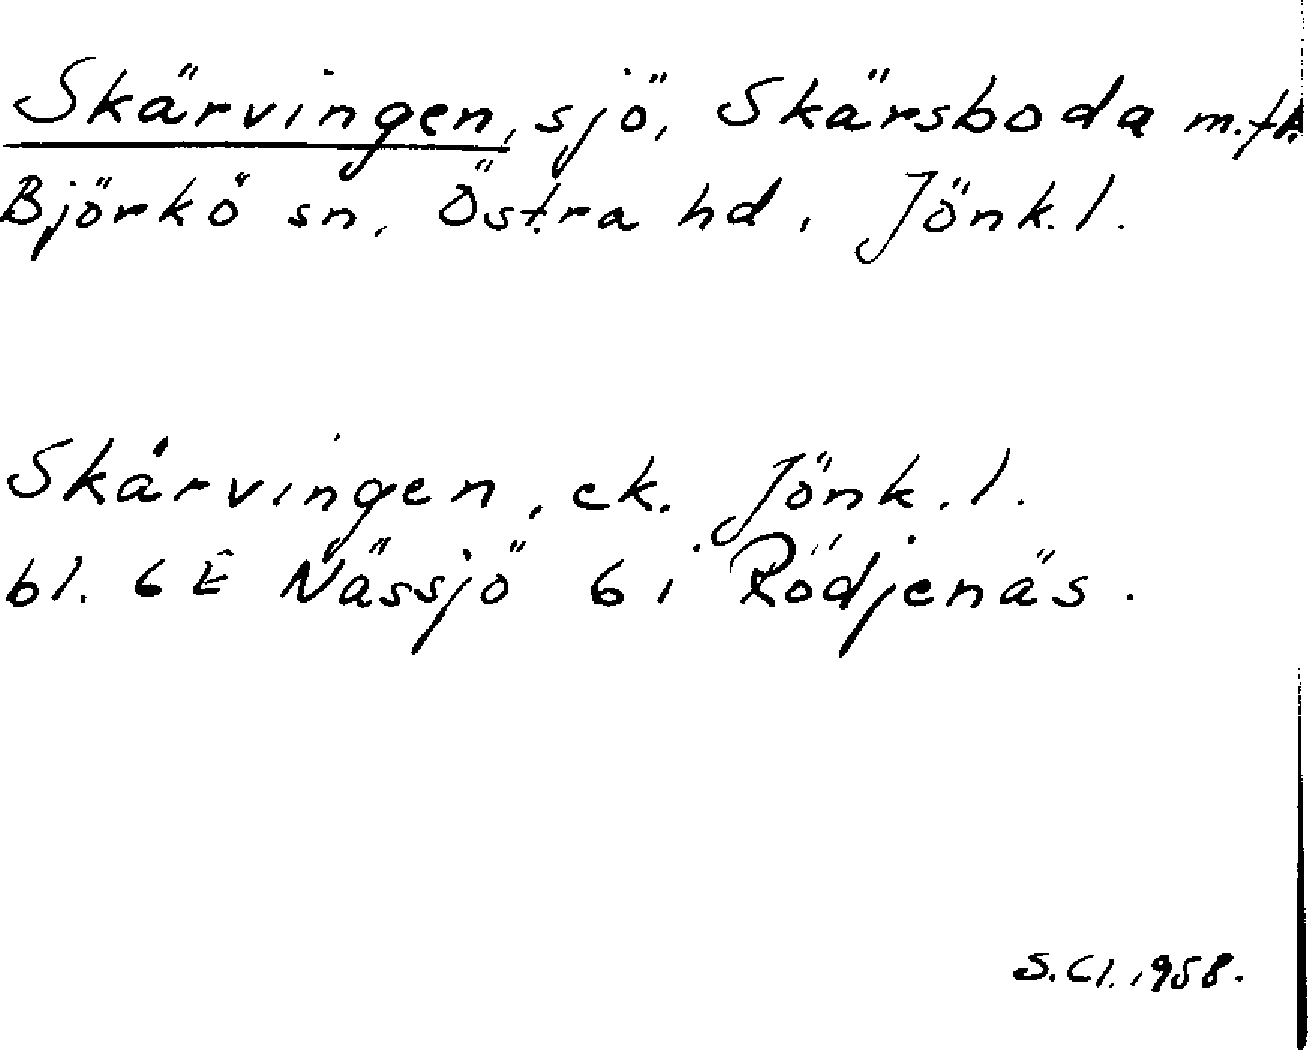 Skärvingen, sjö, Skärsboda m.fl.
Björkö sn, Östra hd, Jönk.l.
Skärvingen, ek. Jönk.l.
bl. 6E Nässjö 6i Rödjenäs.
S.Cl. 1958.